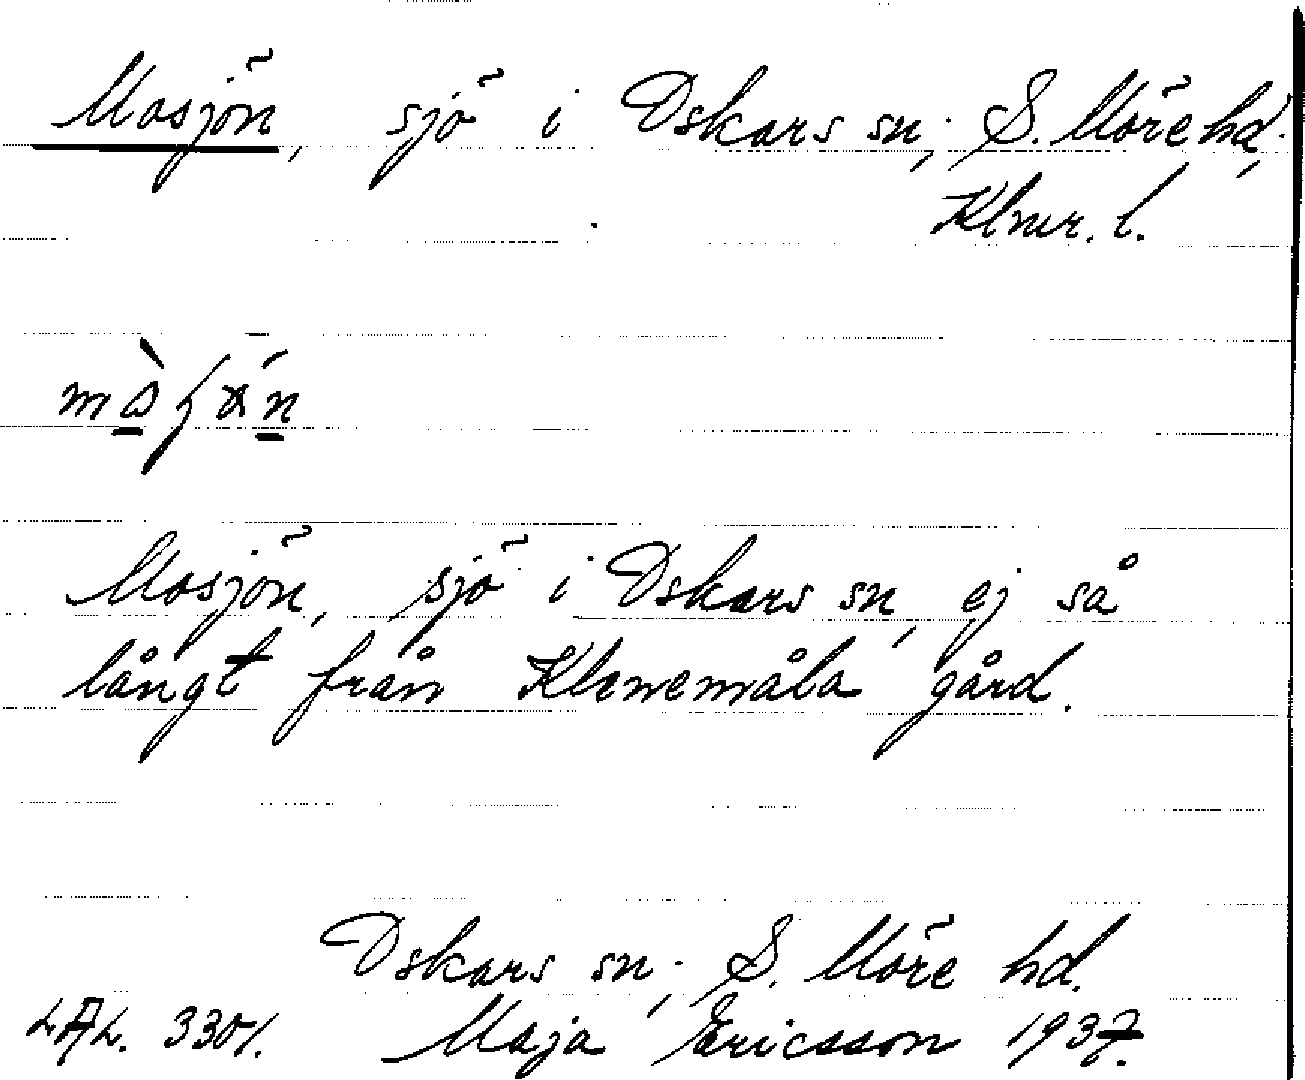 Mosjön, sjö i Oskars sn, S. Möre hd,
Klmr. l.
Mosjön, sjö i Oskars sn, ej så
långt från Klenemåla gård.
Oskars sn, S. Möre hd.
LAL. 3301. Maja Ericsson 1937.